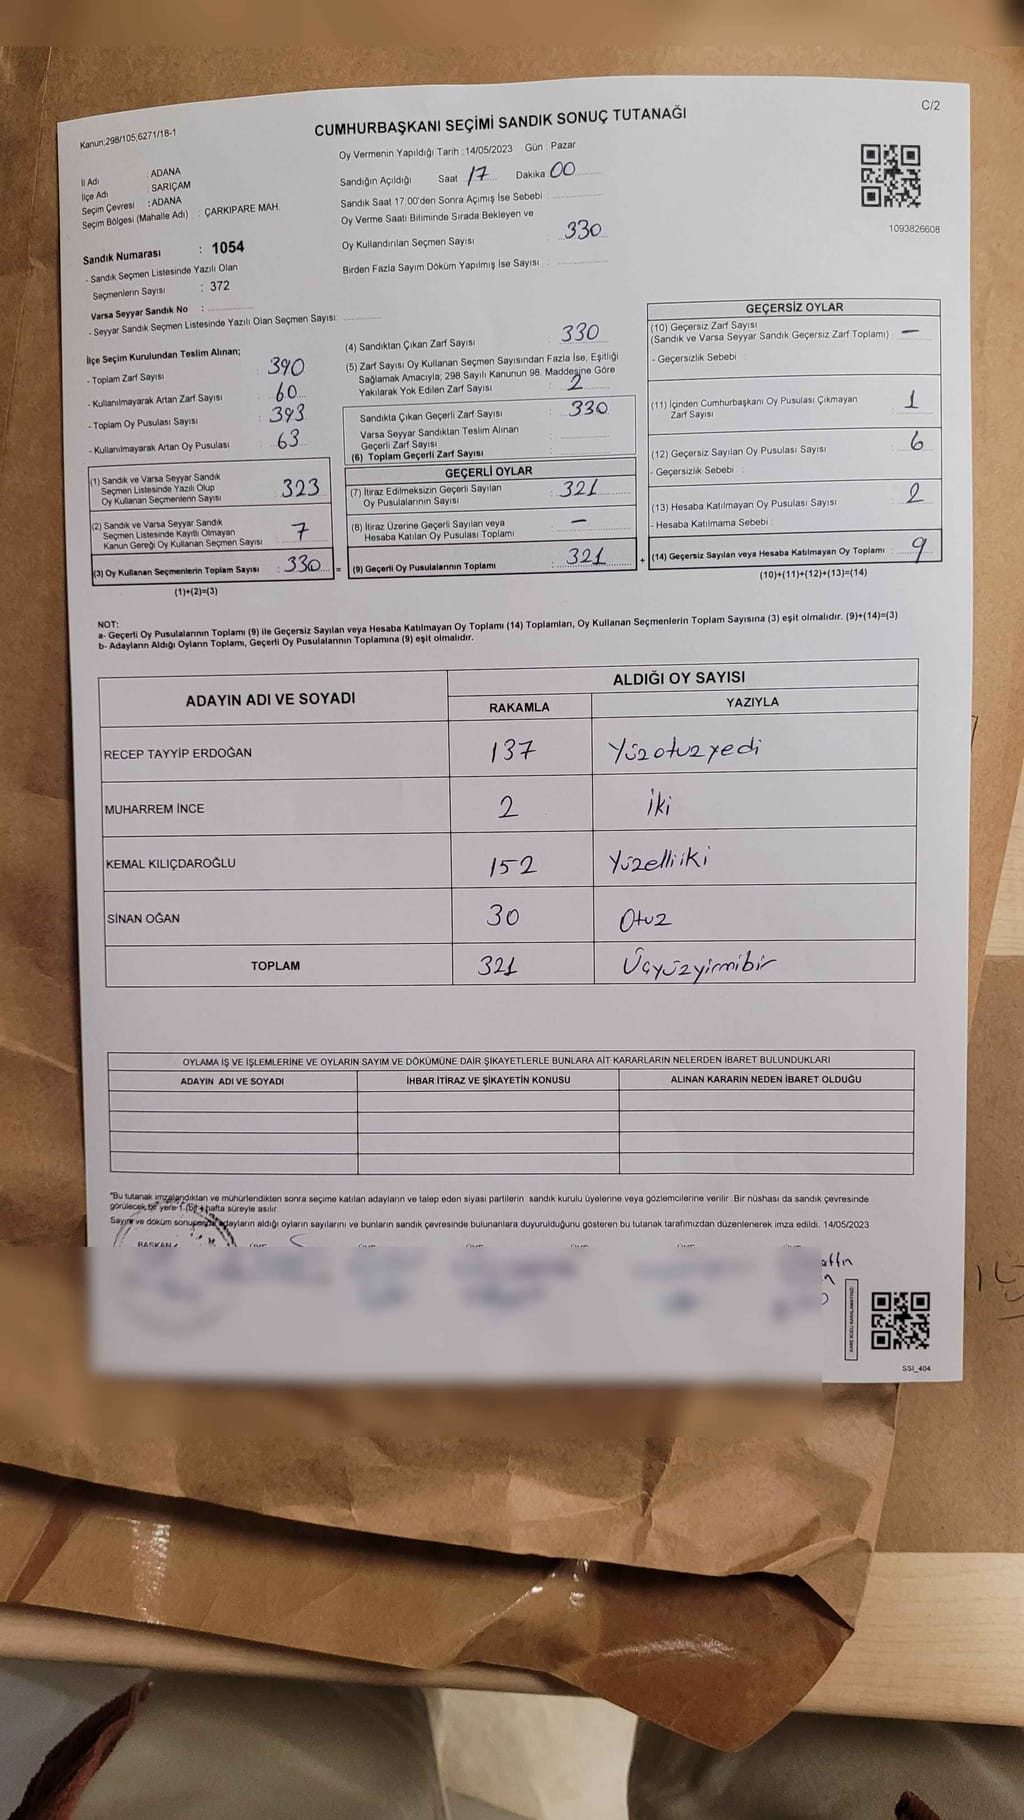 C/2
Kanun;298/105;6271/18-1
CUMHURBAŞKANI SEÇİMİ SANDIK SONUÇ TUTANAĞI
İl Adı : ADANA
İlçe Adı : SARIÇAM
Seçim Çevresi : ADANA
Seçim Bölgesi (Mahalle Adı) : ÇARKIPARE MAH.
Sandık Numarası : 1054
- Sandık Seçmen Listesinde Yazılı Olan
Seçmenlerin Sayısı : 372
Varsa Seyyar Sandık No :
- Seyyar Sandık Seçmen Listesinde Yazılı Olan Seçmen Sayısı:
Oy Vermenin Yapıldığı Tarih : 14/05/2023 Gün : Pazar
Sandığın Açıldığı Saat 17 Dakika 00
Sandık Saat 17:00'den Sonra Açımış İse Sebebi :
Oy Verme Saati Bitiminde Sırada Bekleyen ve
Oy Kullandırılan Seçmen Sayısı : 330
Birden Fazla Sayım Döküm Yapılmış İse Sayısı :
1093826608
İlçe Seçim Kurulundan Teslim Alınan;
- Toplam Zarf Sayısı : 390
- Kullanılmayarak Artan Zarf Sayısı : 60
- Toplam Oy Pusulası Sayısı : 393
- Kullanılmayarak Artan Oy Pusulası : 63
(1) Sandık ve Varsa Seyyar Sandık
Seçmen Listesinde Yazılı Olup
Oy Kullanan Seçmenlerin Sayısı : 323
(2) Sandık ve Varsa Seyyar Sandık
Seçmen Listesinde Kayıtlı Olmayan
Kanun Gereği Oy Kullanan Seçmen Sayısı : 7
(3) Oy Kullanan Seçmenlerin Toplam Sayısı : 330
(1)+(2)=(3)
=
(4) Sandıktan Çıkan Zarf Sayısı : 330
(5) Zarf Sayısı Oy Kullanan Seçmen Sayısından Fazla İse, Eşitliği
Sağlamak Amacıyla, 298 Sayılı Kanunun 98. Maddesine Göre
Yakılarak Yok Edilen Zarf Sayısı : 2
Sandıkta Çıkan Geçerli Zarf Sayısı : 330
Varsa Seyyar Sandıktan Teslim Alınan
Geçerli Zarf Sayısı :
(6) Toplam Geçerli Zarf Sayısı :
GEÇERLİ OYLAR
(7) İtiraz Edilmeksizin Geçerli Sayılan
Oy Pusulalarının Sayısı : 321
(8) İtiraz Üzerine Geçerli Sayılan veya
Hesaba Katılan Oy Pusulası Toplamı : –
(9) Geçerli Oy Pusulalarının Toplamı : 321
+
GEÇERSİZ OYLAR
(10) Geçersiz Zarf Sayısı
(Sandık ve Varsa Seyyar Sandık Geçersiz Zarf Toplamı) : –
- Geçersizlik Sebebi :
(11) İçinden Cumhurbaşkanı Oy Pusulası Çıkmayan
Zarf Sayısı : 1
(12) Geçersiz Sayılan Oy Pusulası Sayısı : 6
- Geçersizlik Sebebi :
(13) Hesaba Katılmayan Oy Pusulası Sayısı : 2
- Hesaba Katılmama Sebebi :
(14) Geçersiz Sayılan veya Hesaba Katılmayan Oy Toplamı : 9
(10)+(11)+(12)+(13)=(14)
NOT:
a- Geçerli Oy Pusulalarının Toplamı (9) ile Geçersiz Sayılan veya Hesaba Katılmayan Oy Toplamı (14) Toplamları, Oy Kullanan Seçmenlerin Toplam Sayısına (3) eşit olmalıdır. (9)+(14)=(3)
b- Adayların Aldığı Oyların Toplamı, Geçerli Oy Pusulalarının Toplamına (9) eşit olmalıdır.
ADAYIN ADI VE SOYADI ALDIĞI OY SAYISI
RAKAMLA YAZIYLA
RECEP TAYYİP ERDOĞAN 137 Yüzotuzyedi
MUHARREM İNCE 2 İki
KEMAL KILIÇDAROĞLU 152 Yüzelliiki
SİNAN OĞAN 30 Otuz
TOPLAM 321 Üçyüzyirmibir
OYLAMA İŞ VE İŞLEMLERİNE VE OYLARIN SAYIM VE DÖKÜMÜNE DAİR ŞİKAYETLERLE BUNLARA AİT KARARLARIN NELERDEN İBARET BULUNDUKLARI
ADAYIN ADI VE SOYADI İHBAR İTİRAZ VE ŞİKAYETİN KONUSU ALINAN KARARIN NEDEN İBARET OLDUĞU
"Bu tutanak imzalandıktan ve mühürlendikten sonra seçime katılan adayların ve talep eden siyasi partilerin sandık kurulu üyelerine veya gözlemcilerine verilir. Bir nüshası da sandık çevresinde
görülecek bir yere 1 (Bir) hafta süreyle asılır.
Sayım ve döküm sonucunda adayların aldığı oyların sayılarını ve bunların sandık çevresinde bulunanlara duyurulduğunu gösteren bu tutanak tarafımızdan düzenlenerek imza edildi. 14/05/2023
BAŞKAN
SSI_404